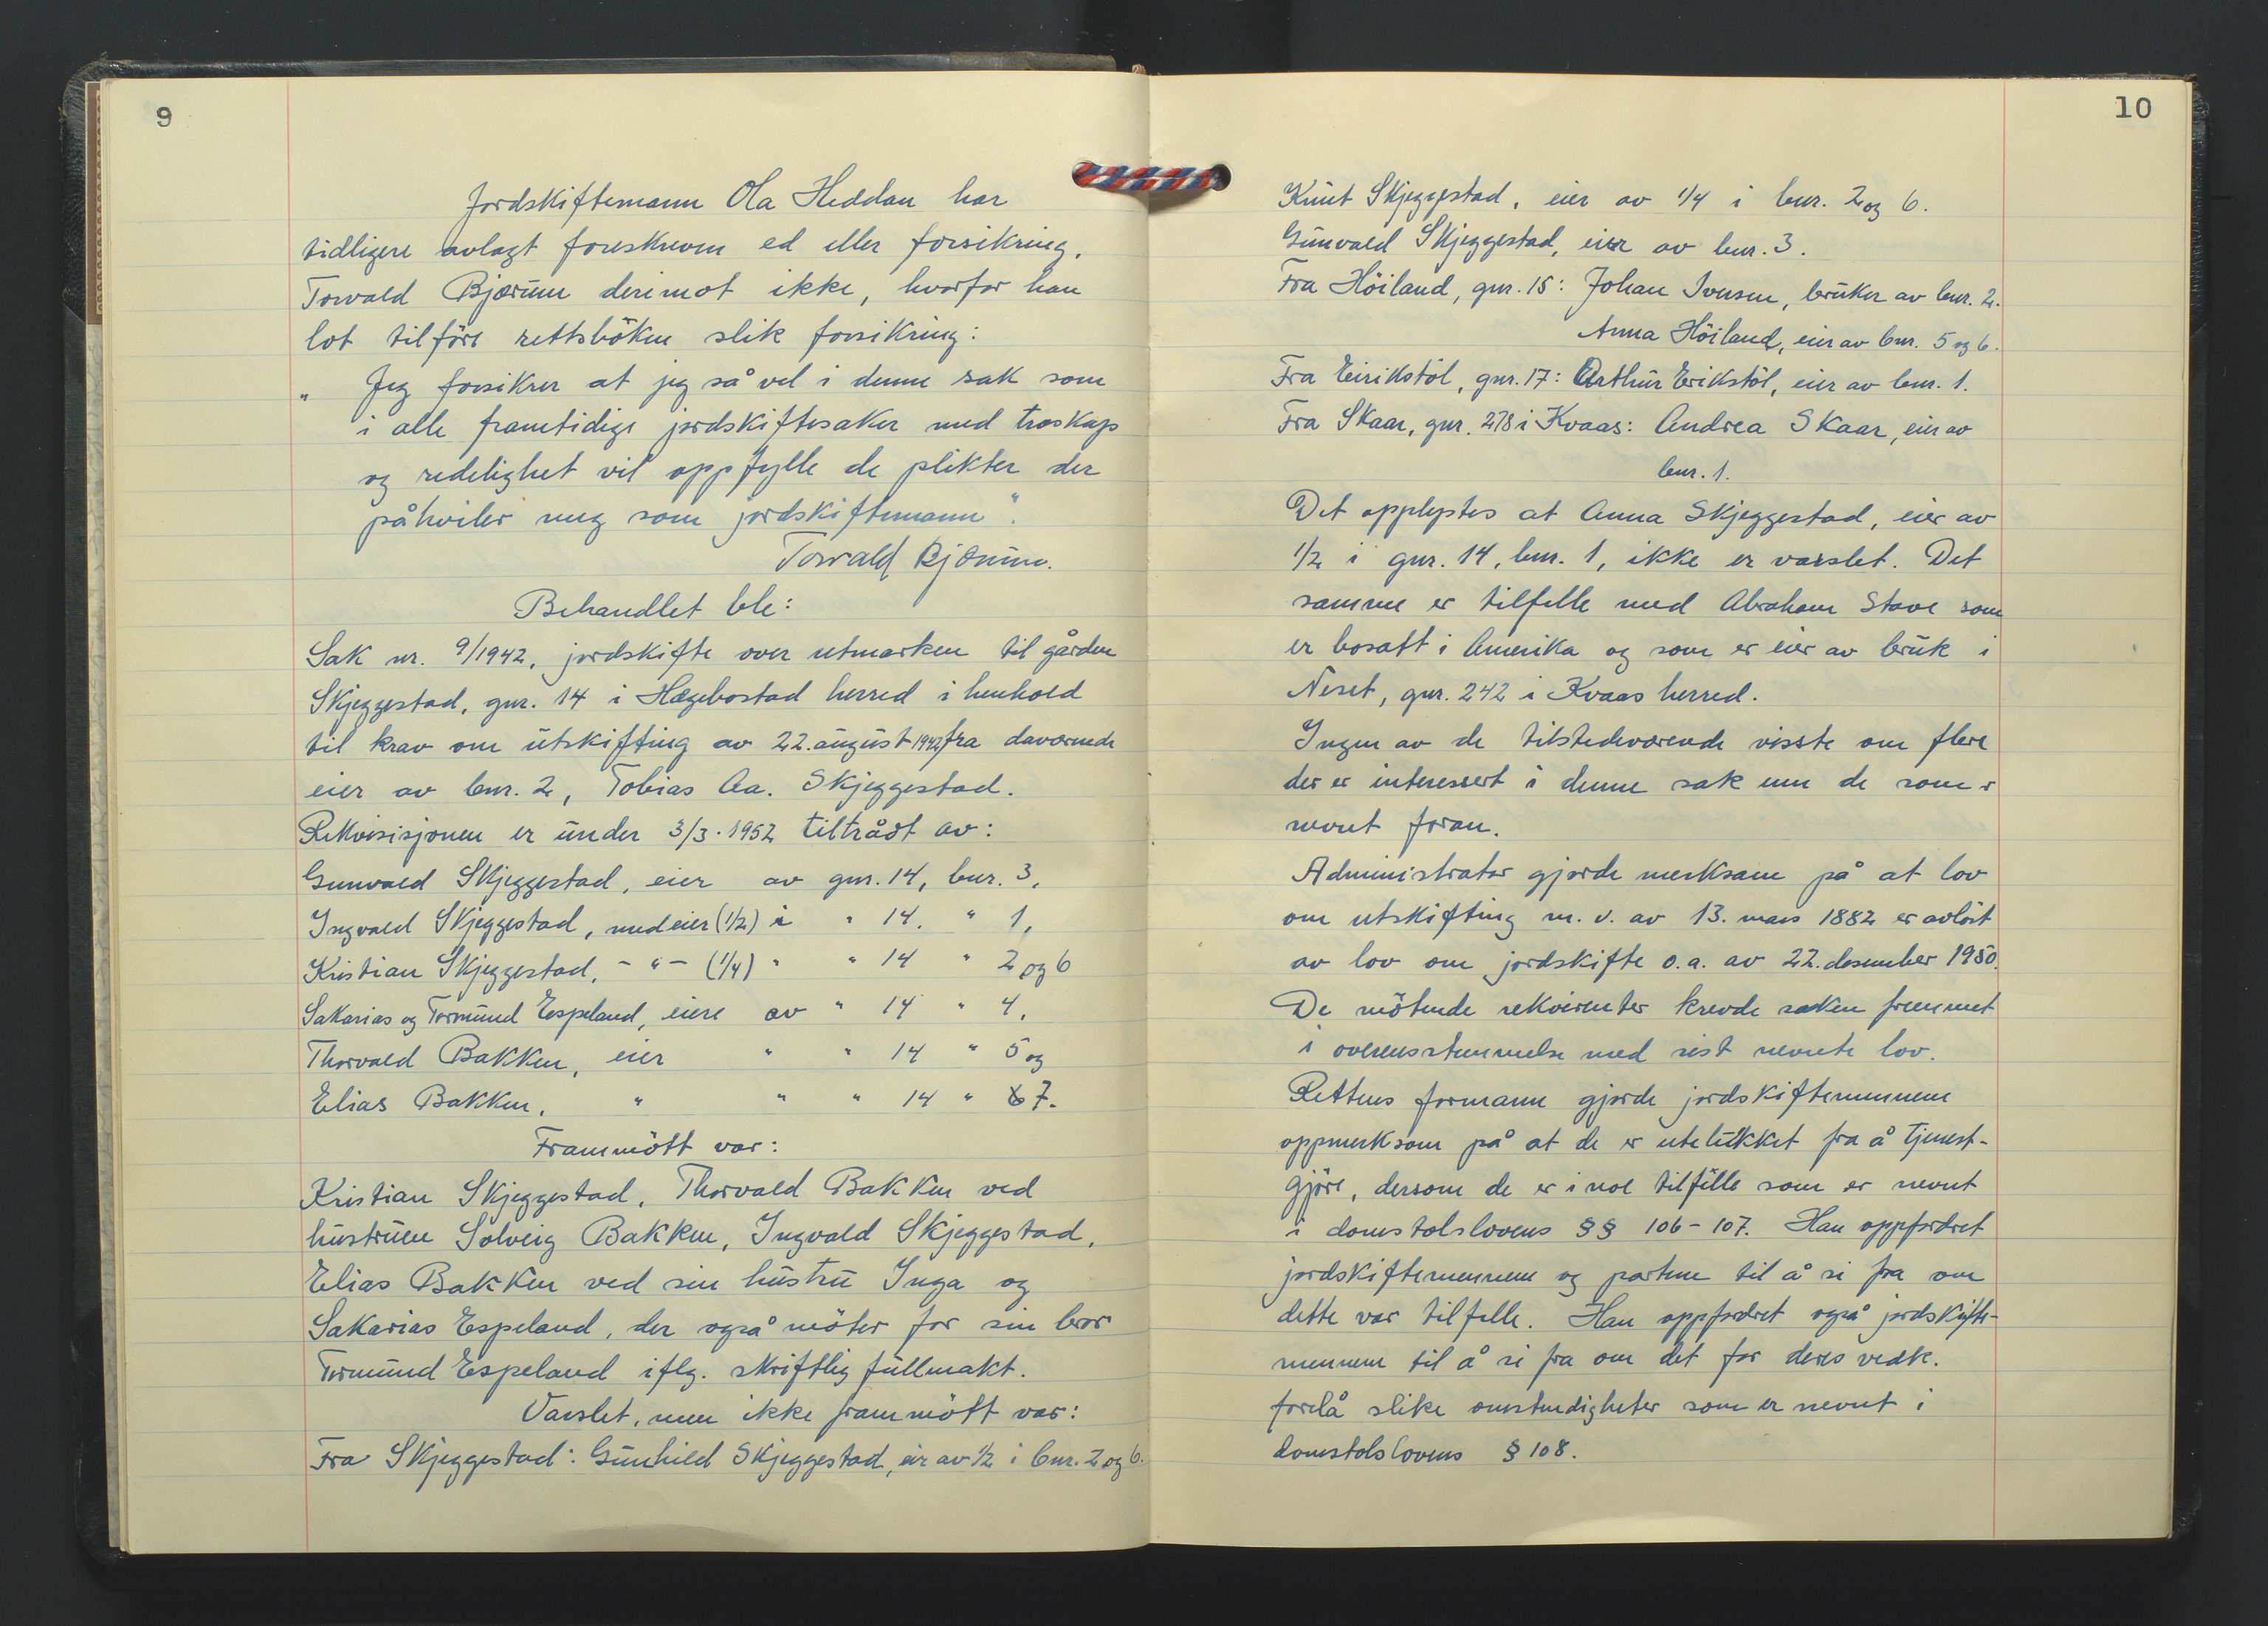 9
Jordskiftemann Ola Heddan har
tidligere avlagt foreskreven ed eller forsikring.
Torvald Bjærum derimot ikke, hvorfor han
lot tilføre rettsböken slik forsikring:
" Jeg forsikrer at jeg så vel i denne sak som
i alle framtidige jordskiftesaker med troskap
og redelighet vil oppfylle de plikter der
påhviler meg som jordskiftemann".
Torvald Bjærum.
Behandlet ble:
Sak nr. 9/1942, jordskifte over utmarken til gården
Skjeggestad, gnr. 14 i Hægebostad herred i henhold
til krav om utskifting av 22. august 1942 fra daværende
eier av bnr. 2, Tobias Aa. Skjeggestad.
Rekvisisjonen er under 3/3.1952 tiltrådt av:
Gunvald Skjeggestad, eier av gnr. 14, bnr. 3,
Ingvald Skjeggestad, medeier (1/2) i " 14. " 1,
Kristian Skjeggestad, - " - (1/4) " " 14 " 2 og 6
Sakarias og Tormund Espeland, eiere av " 14 " 4,
Thorvald Bakken, eier " " 14 " 5 og
Elias Bakken, " " " 14 " 7.
Frammött var:
Kristian Skjeggestad, Thorvald Bakken ved
hustruen Solveig Bakken, Ingvald Skjeggestad,
Elias Bakken ved sin hustru Inga og
Sakarias Espeland, der også möter for sin bror
Tormund Espeland iflg. skriftlig fullmakt.
Varslet, men ikke frammött var:
Fra Skjeggestad: Gunhild Skjeggestad, eier av 1/2 i bnr. 2 og 6.
10
Knut Skjeggestad, eier av 1/4 i bnr. 2 og 6.
Gunvald Skjeggestad, eier av bnr. 3.
Fra Höiland, gnr. 15: Johan Iversen, bruker av bnr. 2.
Anna Höiland, eier av bnr. 5 og 6.
Fra Eirikstöl, gnr. 17: Arthur Erikstöl, eier av bnr. 1.
Fra Skaar, gnr. 278 i Kvaas: Andrea Skaar, eier av
bnr. 1.
Det opplystes at Anna Skjeggestad, eier av
1/2 i gnr. 14, bnr. 1, ikke er varslet. Det
samme er tilfelle med Abraham Stave som
er bosatt i Amerika og som er eier av bruk i
Neset, gnr. 242 i Kvaas herred.
Ingen av de tilstedeværende visste om flere
der er interessert i denne sak enn de som er
nevnt foran.
Administrator gjorde merksam på at lov
om utskifting m. v. av 13. mars 1882 er avlöst
av lov om jordskifte o.a. av 22. desember 1950.
De mötende rekvirenter krevde saken fremmet
i overensstemmelse med sist nevnte lov.
Rettens formann gjorde jordskiftemennene
oppmerksom på at de er utelukket fra å tjenest-
gjöre, dersom de er i noe tilfelle som er nevnt
i domstolslovens §§ 106-107. Han oppfordret
jordskiftemennene og partene til å si fra om
dette var tilfelle. Han oppfordret også jordskifte-
mennene til å si fra om det for deres vedk.
forelå slike omstendigheter som er nevnt i
domstolslovens § 108.